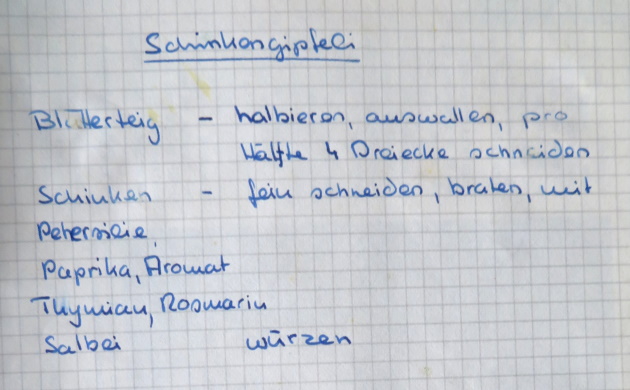 Schinkengipfeli
Blätterteig - halbieren, auswallen, pro
Hälfte 4 Dreiecke schneiden
Schinken - fein schneiden, braten, mit
Petersilie,
Paprika, Aromat
Thymian, Rosmarin
Salbei würzen